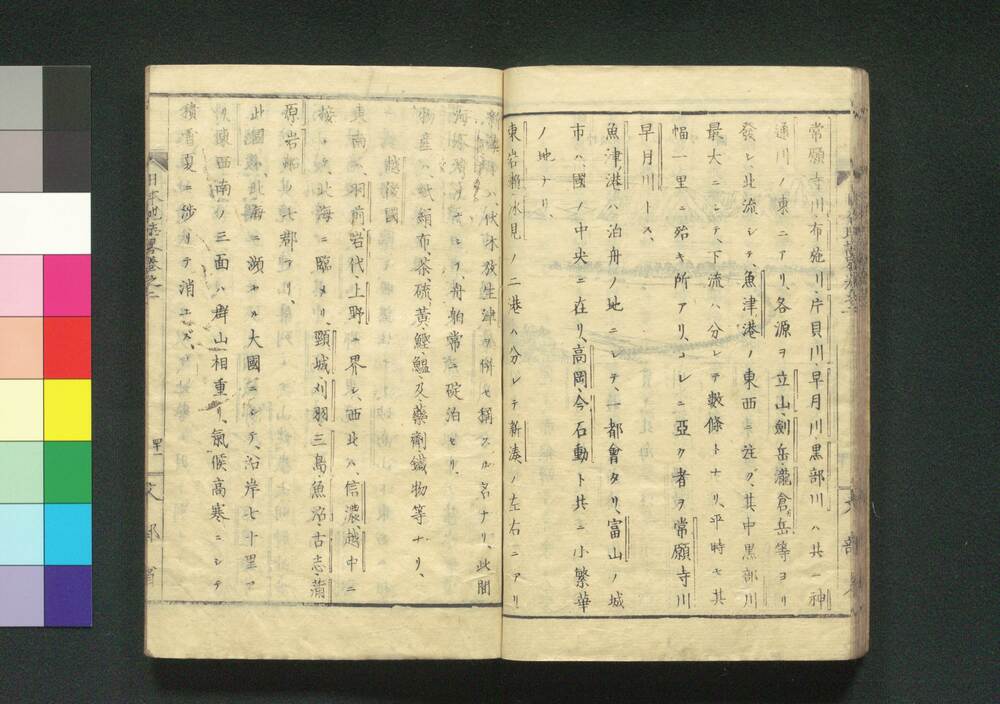 常願寺川、布施川、片貝川、早月川、黒部川ハ共ニ神
通川ノ東ニアリ、各源ヲ立山劍岳瀧倉岳等ヨリ
發シ、北流シテ、魚津港ノ東西ニ注グ、其中黒部川
最大ニシテ、下流ハ分レテ數條トナリ、平時モ其
幅一里ニ殆キ所アリ、コレニ亞ク者ヲ常願寺川
早月川トス、
魚津港ハ泊舟ノ地ニシテ、一都會タリ、富山ノ城
市ハ、國ノ中央ニ在リ、高岡、今石動ト共ニ小繁華
ノ地ナリ、
東岩瀬、氷見ノ二港ハ分レテ新湊ノ左右ニアリ
新湊ハ、伏木放生津ヲ併セ稱スル名ナリ、此間
舟舶常ニ碇泊セリ、
物産ハ、紙、絹布、茶、硫黄、鰹、鰮及藥劑鐵物等ナリ、
越後國
東南ハ、羽前岩代、上野ニ界シ、西北ハ、信濃、越中ニ
接シ、北海ニ臨メリ、頸城刈羽三島魚沼古志蒲
原岩船ノ七郡アリ、
此國ハ、北海ニ瀕セル大國ニシテ、沿岸七十里ア
リ、東西南ノ三面ハ群山相重リ、氣候高寒ニシテ
積雪夏ニ渉リテ消エズ、
日本地誌略卷之二
四十一
文部省